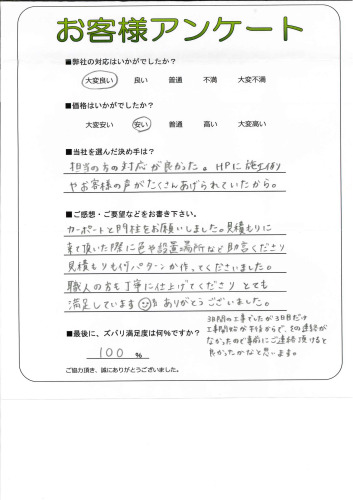 お客様アンケート
■弊社の対応はいかがでしたか？
大変良い 良い 普通 不満 大変不満
■価格はいかがでしたか？
大変安い 安い 普通 高い 大変高い
■当社を選んだ決め手は？
担当の方の対応が良かった。HPに施工例
やお客様の声がたくさんあげられていたから。
■ご感想・ご要望などをお書き下さい。
カーポートと門柱をお願いしました。見積もりに
来て頂いた際に色や設置場所など助言くださり
見積もりも何パターンか作ってくださいました。
職人の方も丁寧に仕上げてくださり とても
満足しています ありがとうございました。
3日間の工事でしたが3日目だけ
工事開始が午後からで、その連絡が
なかったので事前にご連絡頂けると
良かったかなと思います。
■最後に、ズバリ満足度は何%ですか？
100 %
ご協力頂き、誠にありがとうございました。